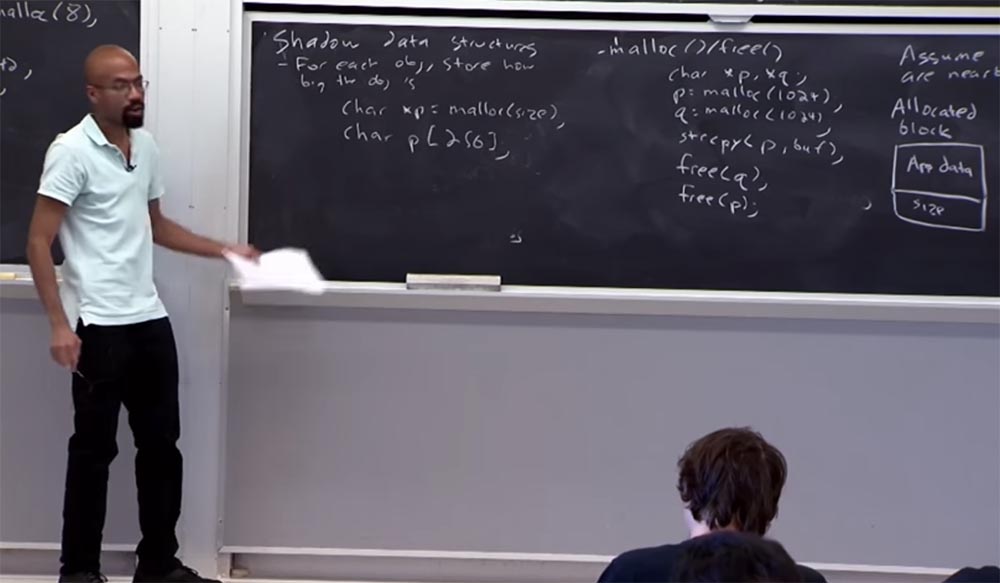 malloc(8);
Shadow data structures
- For each obj, store how
big the obj is
char *p = malloc(size);
char p[256];
- malloc()/free()
char *p, *q;
p = malloc(1024);
q = malloc(1024);
strcpy(p, buf);
free(q);
free(p);
Assume
are near
Allocated
block
App data
size